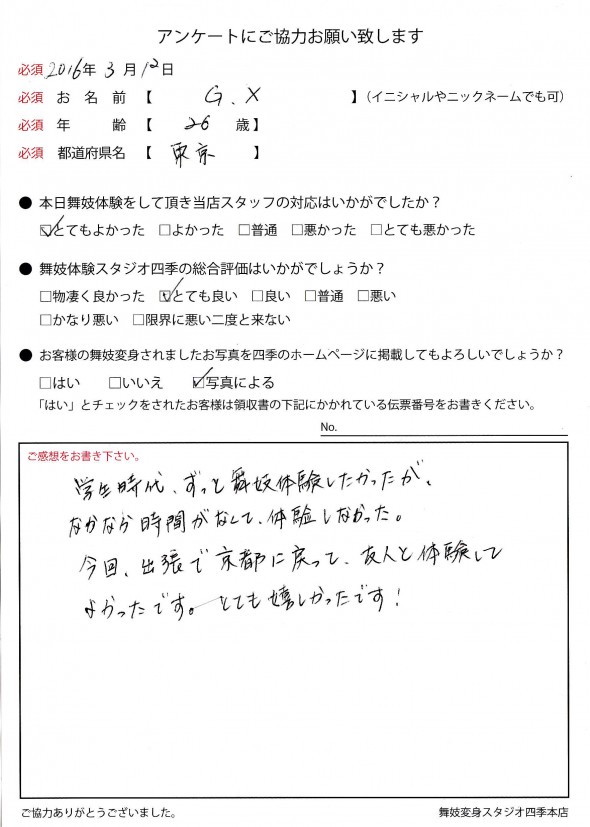 アンケートにご協力お願い致します
必須 2016年 3月 12日
必須 お名前 【 G.X 】(イニシャルやニックネームでも可)
必須 年齢 【 26 歳】
必須 都道府県名 【 東京 】
● 本日舞妓体験をして頂き当店スタッフの対応はいかがでしたか?
☑とてもよかった □よかった □普通 □悪かった □とても悪かった
● 舞妓体験スタジオ四季の総合評価はいかがでしょうか?
□物凄く良かった ☑とても良い □良い □普通 □悪い
□かなり悪い □限界に悪い二度と来ない
● お客様の舞妓変身されましたお写真を四季のホームページに掲載してもよろしいでしょうか?
□はい □いいえ ☑写真による
「はい」とチェックをされたお客様は領収書の下記にかかれている伝票番号をお書きください。
No.
ご感想をお書き下さい。
学生時代、ずっと舞妓体験したかったが、
なかなか時間がなくて、体験しなかった。
今回、出張で京都に戻って、友人と体験して
よかったです。とても嬉しかったです!
ご協力ありがとうございました。
舞妓変身スタジオ四季本店